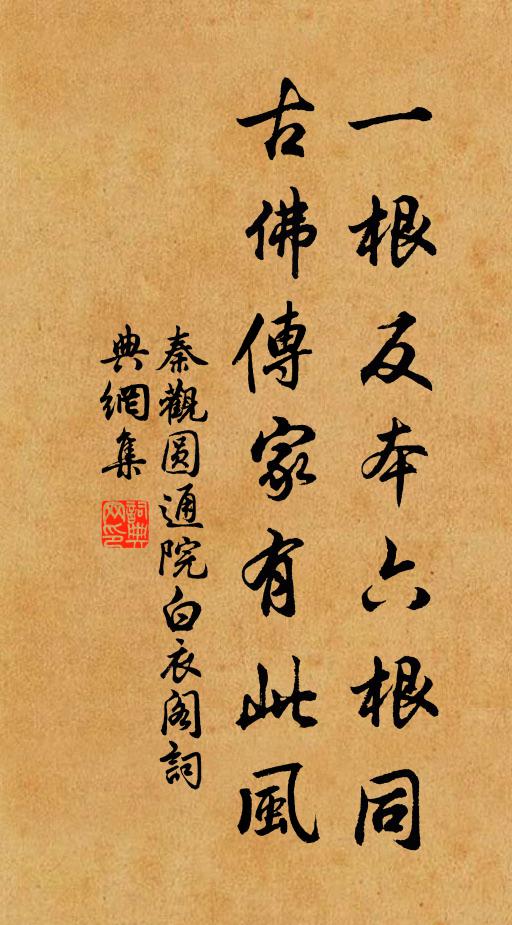 一根反本六根同
古佛傳家有此風
秦觀圆通院白衣阁詞
典網集
詞典
网印